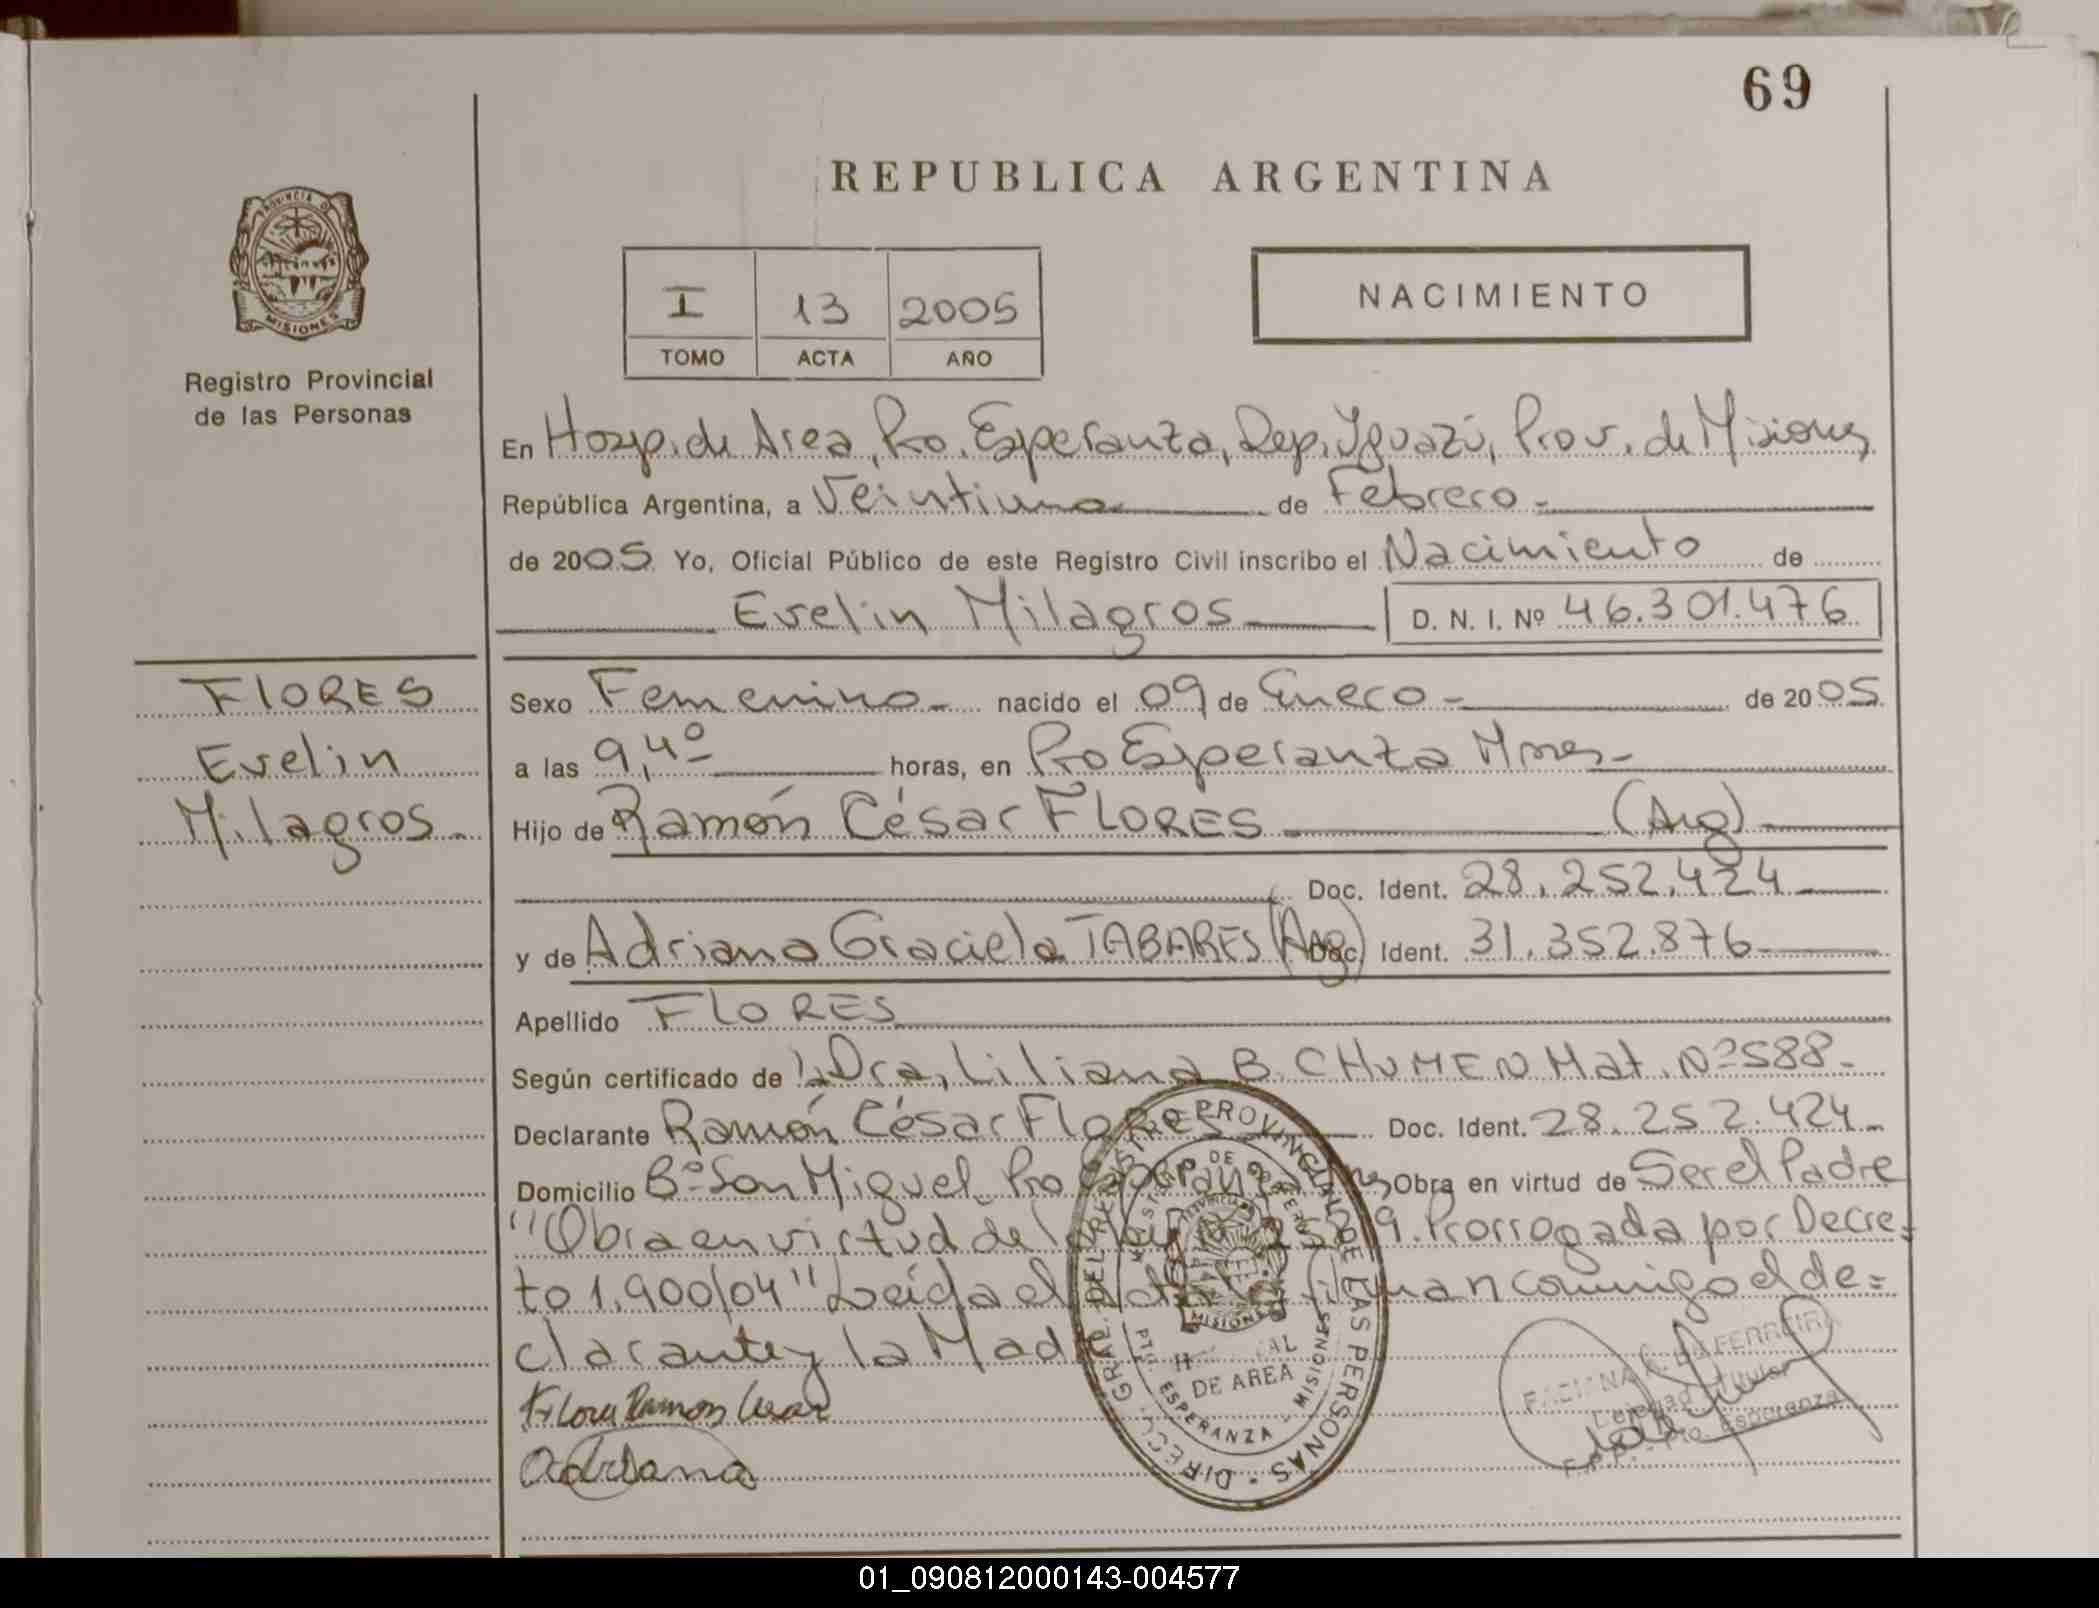 69
REPUBLICA ARGENTINA
PROVINCIA D
MISIONES
Registro Provincial
de las Personas
I 13 2005
TOMO ACTA AÑO
NACIMIENTO
En Hosp. de Area, Pto. Esperanza, Dep. Iguazú, Prov. de Misiones
República Argentina, a Veintiuno de Febrero
de 2005 Yo, Oficial Público de este Registro Civil inscribo el Nacimiento de
Evelin Milagros D. N. I. Nº 46.301.476
FLORES
Evelin
Milagros
Sexo Femenino nacido el 09 de Enero de 2005
a las 9,40 horas, en Pto Esperanza Mnes
Hijo de Ramón César FLORES (Arg)
Doc. Ident. 28.252.424
y de Adriana Graciela TABARES (Arg) Doc. Ident. 31.352.876
Apellido FLORES
Según certificado de la Dra, Liliana B. CHUMEN Mat. Nº 588
Declarante Ramón César Flores Doc. Ident. 28.252.424
Domicilio Bº San Miguel Pto Esperanza Mnes Obra en virtud de Ser el Padre
"Obra en virtud de la Ley Prorrogada por Decre-
to 1.900/04" Leída el Acta la firman conmigo el de=
clarante y la Madre
Flores Ramon Cesar
adriana
DIRECC. GRAL. DEL REGISTRO PROVINCIAL DE LAS PERSONAS
MINISTERIO DE GOBIERNO
MISIONES
DE AREA
PTO. ESPERANZA - MISIONES
DA FERREIRA
Delegada Titular
R.P.P. - Pto. Esperanza
01_090812000143-004577